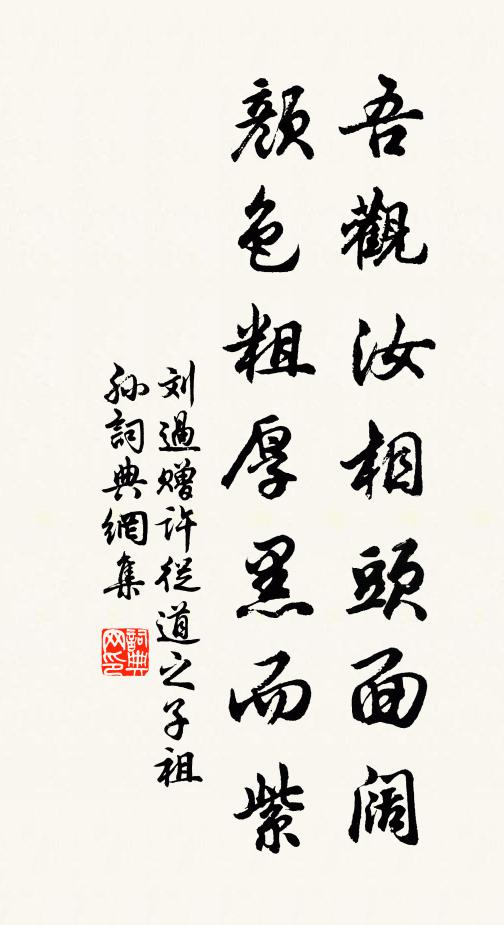 吾觀汝相頭面阔
顏色粗厚黑而紫
刘過赠许從道之子祖
孙詞典網集
詞典网印